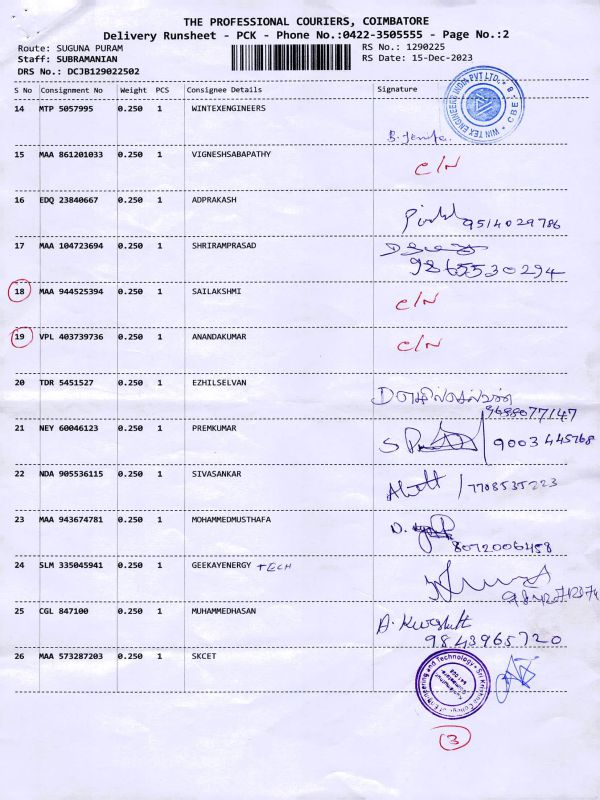 THE PROFESSIONAL COURIERS, COIMBATORE
Delivery Runsheet - PCK - Phone No.:0422-3505555 - Page No.:2
Route: SUGUNA PURAM RS No.: 1290225
Staff: SUBRAMANIAN RS Date: 15-Dec-2023
DRS No.: DCJB129022502
S No Consignment No Weight PCS Consignee Details Signature
14 MTP 5057995 0.250 1 WINTEXENGINEERS
WIN TEX ENGINEERS INDIA PVT LTD. CBE
15 MAA 861201033 0.250 1 VIGNESHSABAPATHY C/N
16 EDQ 23840667 0.250 1 ADPRAKASH 9514029786
17 MAA 104723694 0.250 1 SHRIRAMPRASAD
9865530294
18 MAA 944525394 0.250 1 SAILAKSHMI C/N
19 VPL 403739736 0.250 1 ANANDAKUMAR C/N
20 TDR 5451527 0.250 1 EZHILSELVAN
9698077147
21 NEY 60046123 0.250 1 PREMKUMAR 9003445768
22 NDA 905536115 0.250 1 SIVASANKAR 7708535223
23 MAA 943674781 0.250 1 MOHAMMEDMUSTHAFA
8072006458
24 SLM 335045941 0.250 1 GEEKAYENERGY TECH
25 CGL 847100 0.250 1 MUHAMMEDHASAN
9843965720
26 MAA 573287203 0.250 1 SKCET
Sri Krishna College of Engineering and Technology
3